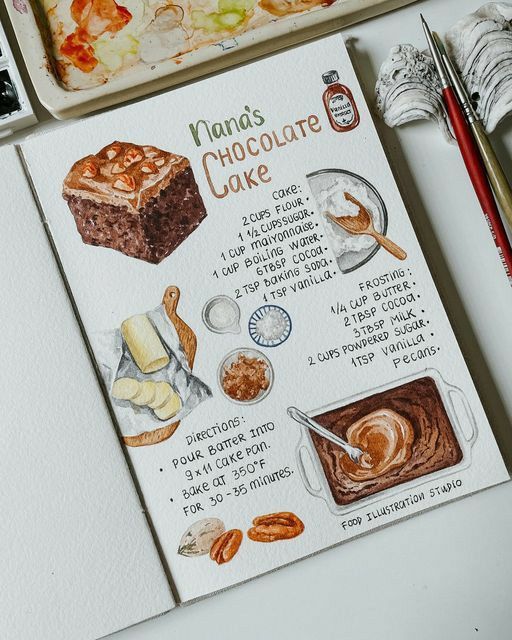 Nana's
CHOCOLATE
Cake
Vanilla
CAKE:
2 CUPS FLOUR.
1 1/2 CUPS SUGAR.
1 CUP MAIYONNAISE.
1 CUP BOILING WATER.
6 TBSP COCOA.
2 TSP BAKING SODA.
1 TSP VANILLA.
FROSTING:
1/4 CUP BUTTER.
2 TBSP COCOA.
3 TBSP MILK.
2 CUPS POWDERED SUGAR.
1 TSP VANILLA.
PECANS.
DIRECTIONS:
• POUR BATTER INTO
9 x 11 CAKE PAN.
• BAKE AT 350°F
FOR 30-35 MINUTES.
FOOD ILLUSTRATION STUDIO